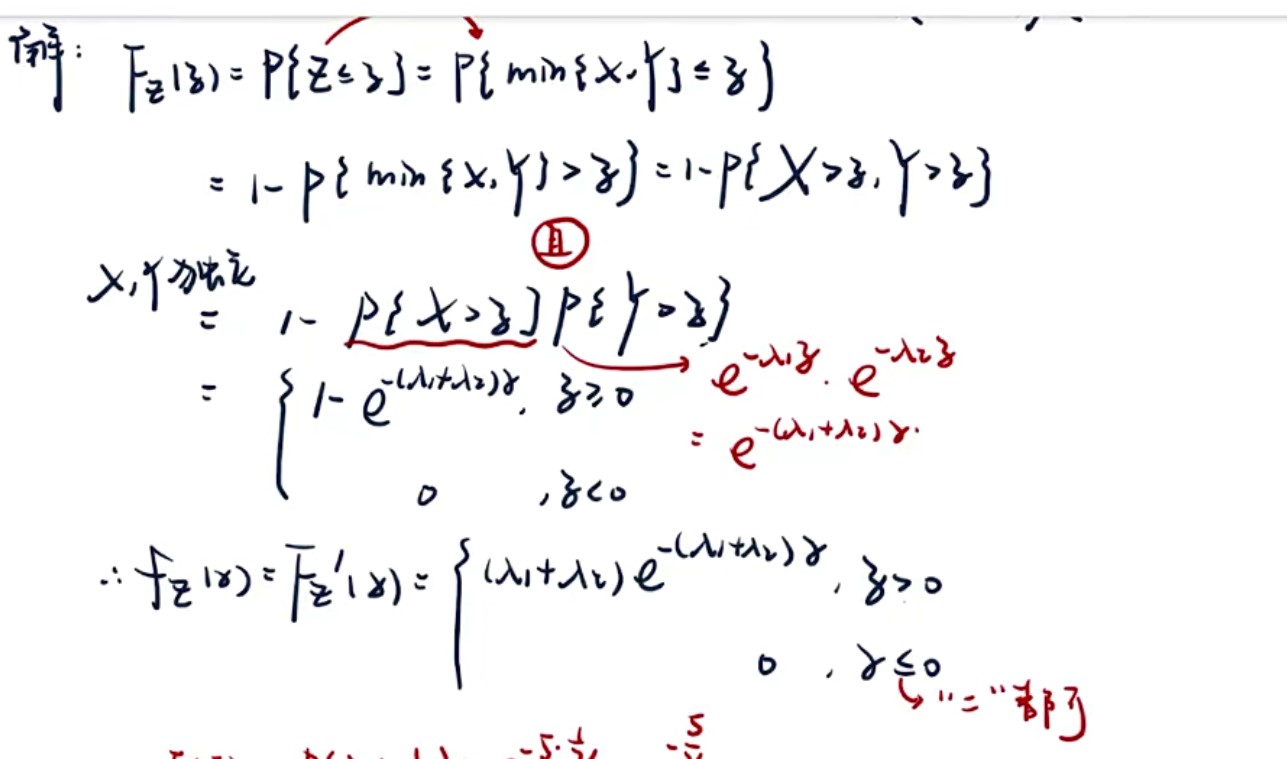 解: F_Z(z) = P{Z≤z} = P{min{X,Y}≤z}
= 1-P{min{X,Y}>z} = 1-P{X>z,Y>z}
且
X,Y为独立
= 1- P{X>z}P{Y>z}
e^{-λ₁z}·e^{-λ₂z}
= { 1-e^{-(λ₁+λ₂)z}, z≥0
= e^{-(λ₁+λ₂)z}.
0 ,z<0
∴ f_Z(z) = F_Z'(z) = { (λ₁+λ₂)e^{-(λ₁+λ₂)z}, z>0
0 , z≤0
"="都可